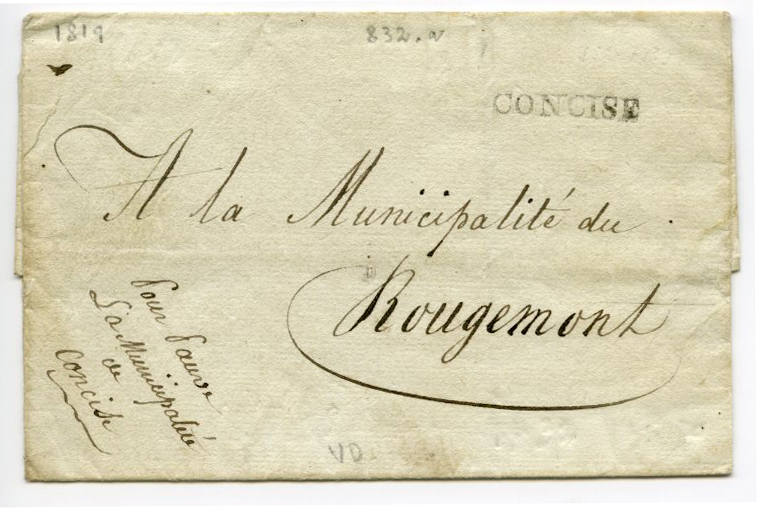 1819
832.a
CONCISE
A la Municipalité du
Rougemont
Pour Pauvre
La Municipalité
de
Concise
VD